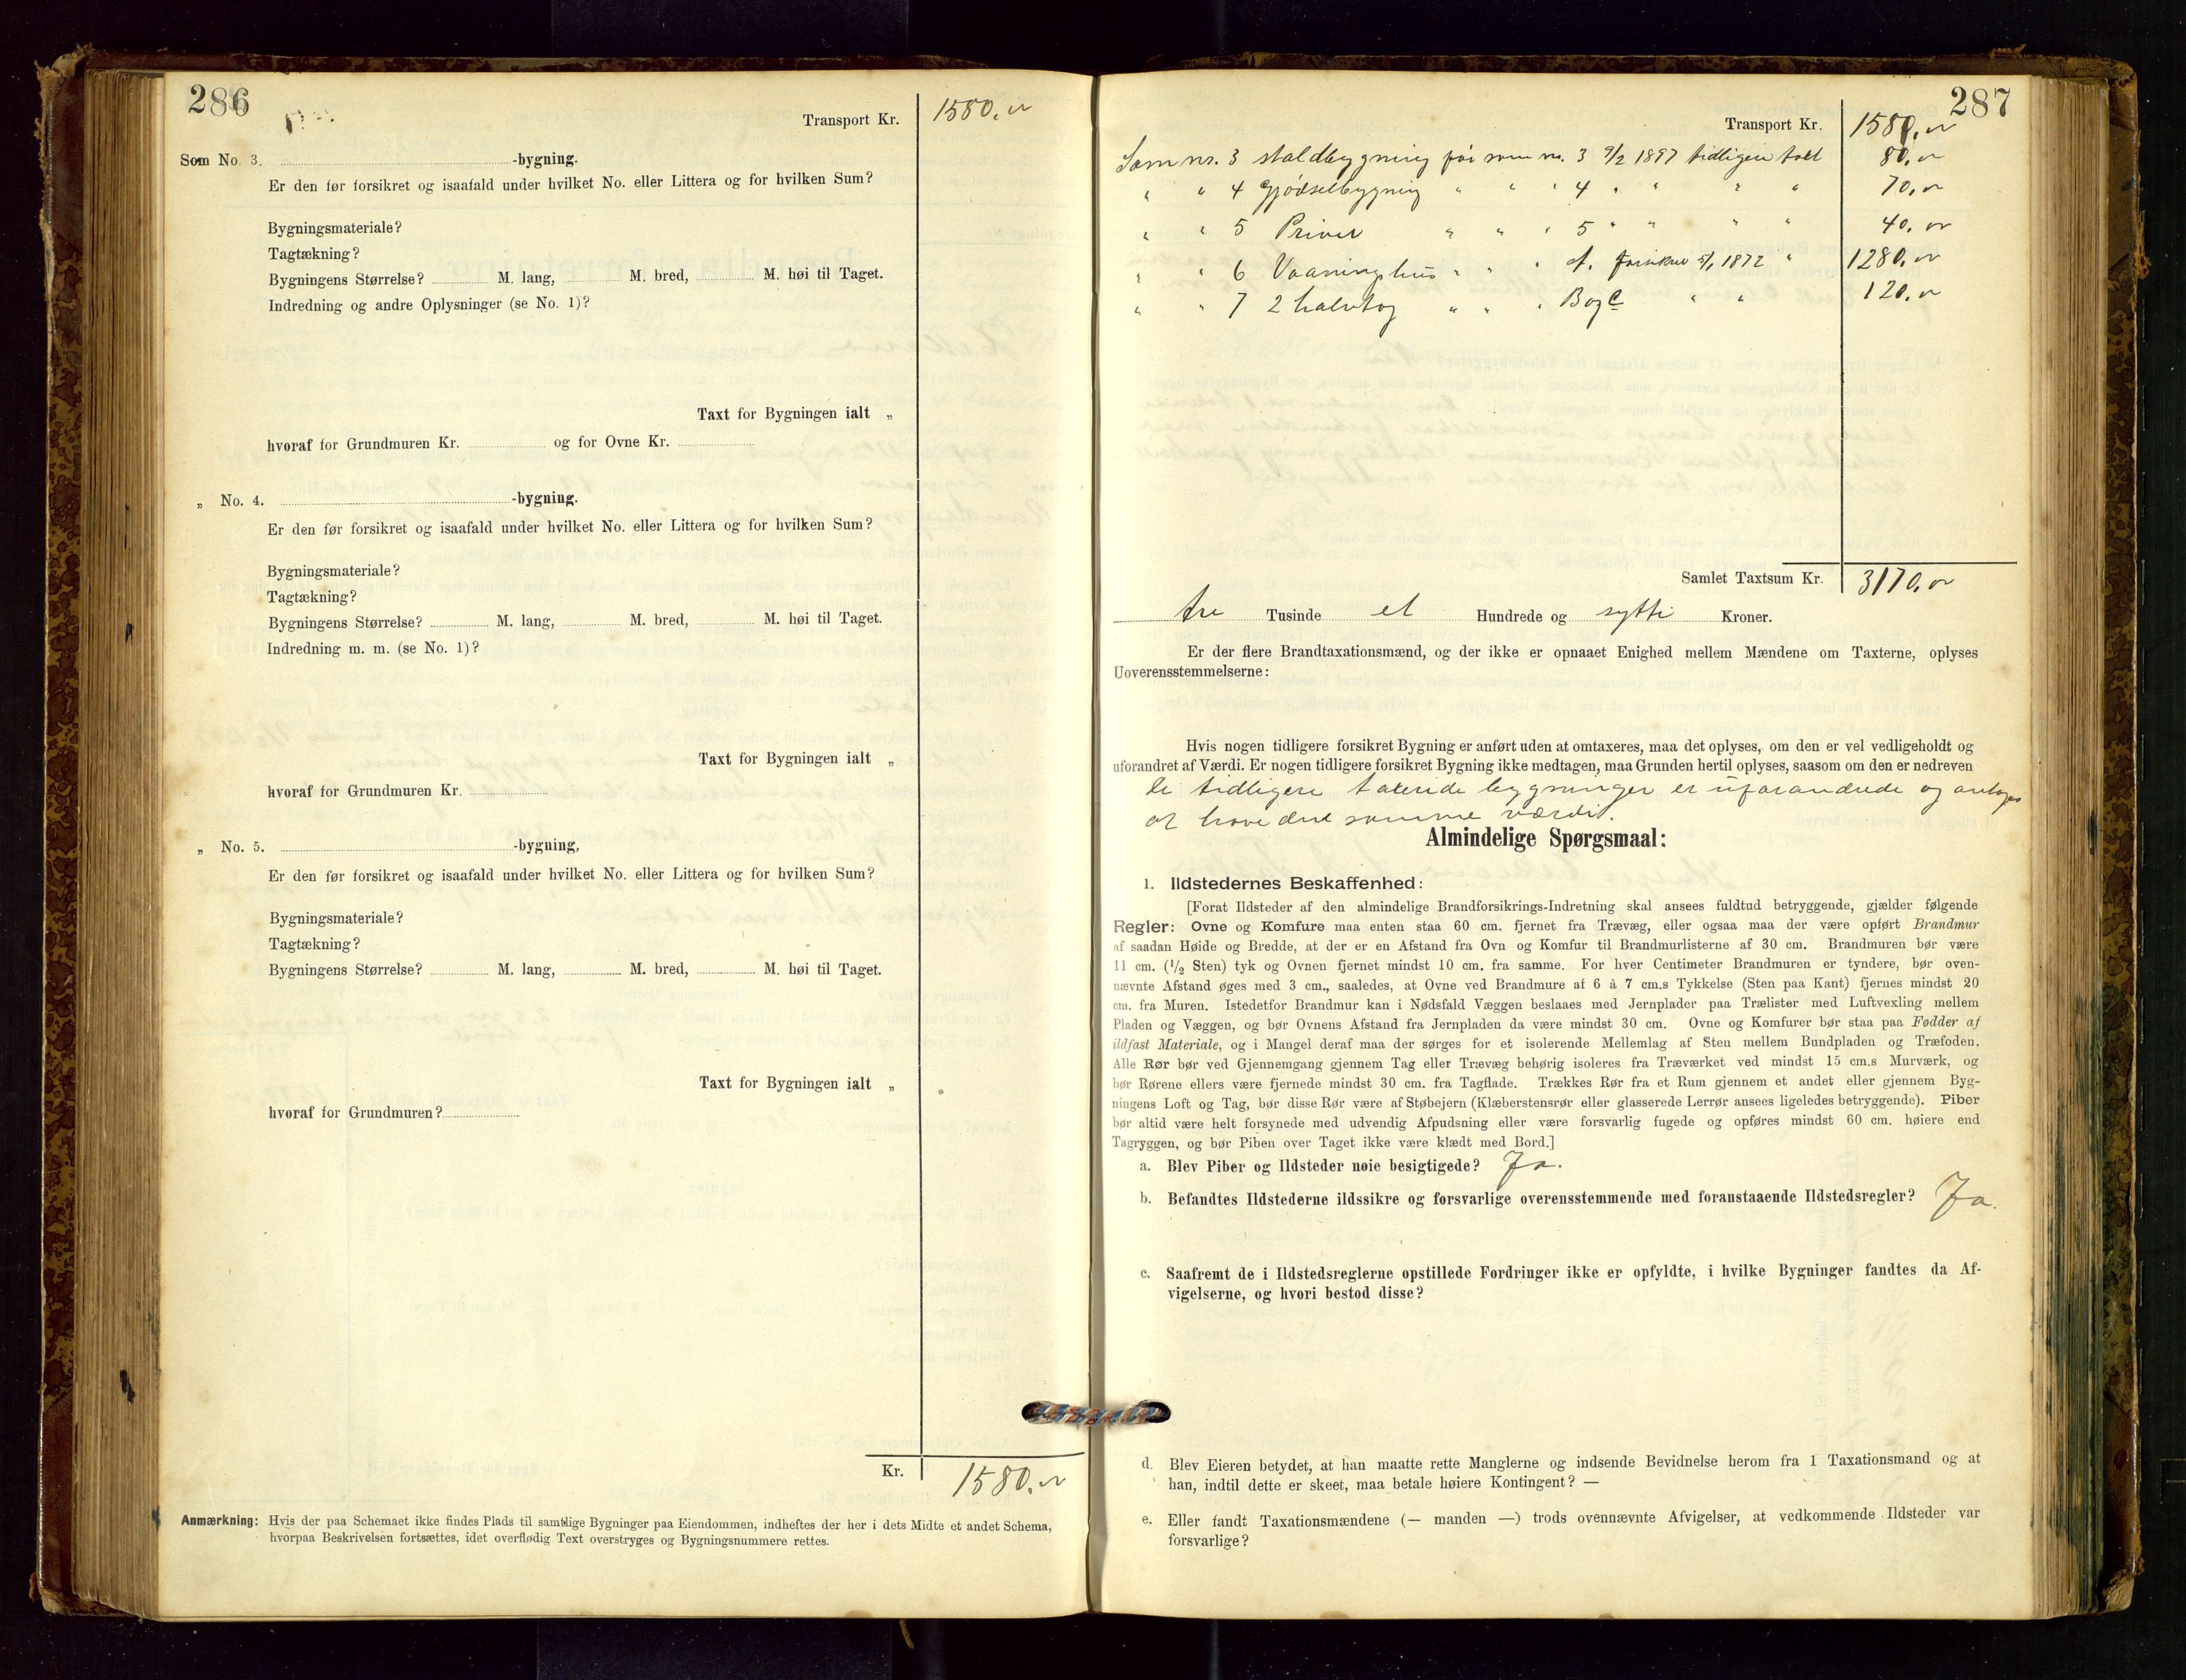 286
Transport Kr. 1580,
Som No. 3. -bygning.
Er den før forsikret og isaafald under hvilket No. eller Littera og for hvilken Sum?
Bygningsmateriale?
Tagtækning?
Bygningens Størrelse? M. lang, M. bred, M. høi til Taget.
Indredning og andre Oplysninger (se No. 1)?
Taxt for Bygningen ialt „
hvoraf for Grundmuren Kr. og for Ovne Kr.
„ No. 4. -bygning.
Er den før forsikret og isaafald under hvilket No. eller Littera og for hvilken Sum?
Bygningsmateriale?
Tagtækning?
Bygningens Størrelse? M. lang, M. bred, M. høi til Taget.
Indredning m. m. (se No. 1)?
Taxt for Bygningen ialt „
hvoraf for Grundmuren Kr.
„ No. 5. -bygning,
Er den før forsikret og isaafald under hvilket No. eller Littera og for hvilken Sum?
Bygningsmateriale?
Tagtækning?
Bygningens Størrelse? M. lang, M. bred, M. høi til Taget.
Taxt for Bygningen ialt „
hvoraf for Grundmuren?
Kr. 1580,
Anmærkning: Hvis der paa Schemaet ikke findes Plads til samtlige Bygninger paa Eiendommen, indheftes der her i dets Midte et andet Schema,
hvorpaa Beskrivelsen fortsættes, idet overflødig Text overstryges og Bygningsnummere rettes.
287
Transport Kr. 1580,
Som nr. 3 staldbygning før som nr. 3 9/2 1897 tidligere 80,
" " 4 Gjødselbygning " " " 4 " " " " 70,
" " 5 " " " 5 " " " " 40,
" " 6 Vaaningshus " " " A. forsikret 5/1 1872 " 1280,
" " 7 2 " " " B og C " " 120,
Samlet Taxtsum Kr. 3170,
tre Tusinde et Hundrede og sytti Kroner.
Er der flere Brandtaxationsmænd, og der ikke er opnaaet Enighed mellem Mændene om Taxterne, oplyses
Uoverensstemmelserne:
Hvis nogen tidligere forsikret Bygning er anført uden at omtaxeres, maa det oplyses, om den er vel vedligeholdt og
uforandret af Værdi. Er nogen tidligere forsikret Bygning ikke medtagen, maa Grunden hertil oplyses, saasom om den er nedreven
De tidligere takserede bygninger er uforandrede og antages
at have den samme værdi.
Almindelige Spørgsmaal:
1. Ildstedernes Beskaffenhed:
[Forat Ildsteder af den almindelige Brandforsikrings-Indretning skal ansees fuldtud betryggende, gjælder følgende
Regler: Ovne og Komfure maa enten staa 60 cm. fjernet fra Trævæg, eller ogsaa maa der være opført Brandmur
af saadan Høide og Bredde, at der er en Afstand fra Ovn og Komfur til Brandmurlisterne af 30 cm. Brandmuren bør være
11 cm. (1/2 Sten) tyk og Ovnen fjernet mindst 10 cm. fra samme. For hver Centimeter Brandmuren er tyndere, bør oven-
nævnte Afstand øges med 3 cm., saaledes, at Ovne ved Brandmure af 6 à 7 cm.s Tykkelse (Sten paa Kant) fjernes mindst 20
cm. fra Muren. Istedetfor Brandmur kan i Nødsfald Væggen beslaaes med Jernplader paa Trælister med Luftvexling mellem
Pladen og Væggen, og bør Ovnens Afstand fra Jernpladen da være mindst 30 cm. Ovne og Komfurer bør staa paa Fødder af
ildfast Materiale, og i Mangel deraf maa der sørges for et isolerende Mellemlag af Sten mellem Bundpladen og Træfoden.
Alle Rør bør ved Gjennemgang gjennem Tag eller Trævæg behørig isoleres fra Træværket ved mindst 15 cm.s Murværk, og
bør Rørene ellers være fjernede mindst 30 cm. fra Tagflade. Trækkes Rør fra et Rum gjennem et andet eller gjennem Byg-
ningens Loft og Tag, bør disse Rør være af Støbejern (Klæberstensrør eller glasserede Lerrør ansees ligeledes betryggende). Piber
bør altid være helt forsynede med udvendig Afpudsning eller være forsvarlig fugede og opføres mindst 60 cm. høiere end
Tagryggen, og bør Piben over Taget ikke være klædt med Bord.]
a. Blev Piber og Ildsteder nøie besigtigede? Ja.
b. Befandtes Ildstederne ildssikre og forsvarlige overensstemmende med foranstaaende Ildstedsregler? Ja.
c. Saafremt de i Ildstedsreglerne opstillede Fordringer ikke er opfyldte, i hvilke Bygninger fandtes da Af-
vigelserne, og hvori bestod disse?
d. Blev Eieren betydet, at han maatte rette Manglerne og indsende Bevidnelse herom fra 1 Taxationsmand og at
han, indtil dette er skeet, maa betale høiere Kontingent? —
e. Eller fandt Taxationsmændene (— manden —) trods ovennævnte Afvigelser, at vedkommende Ildsteder var
forsvarlige?